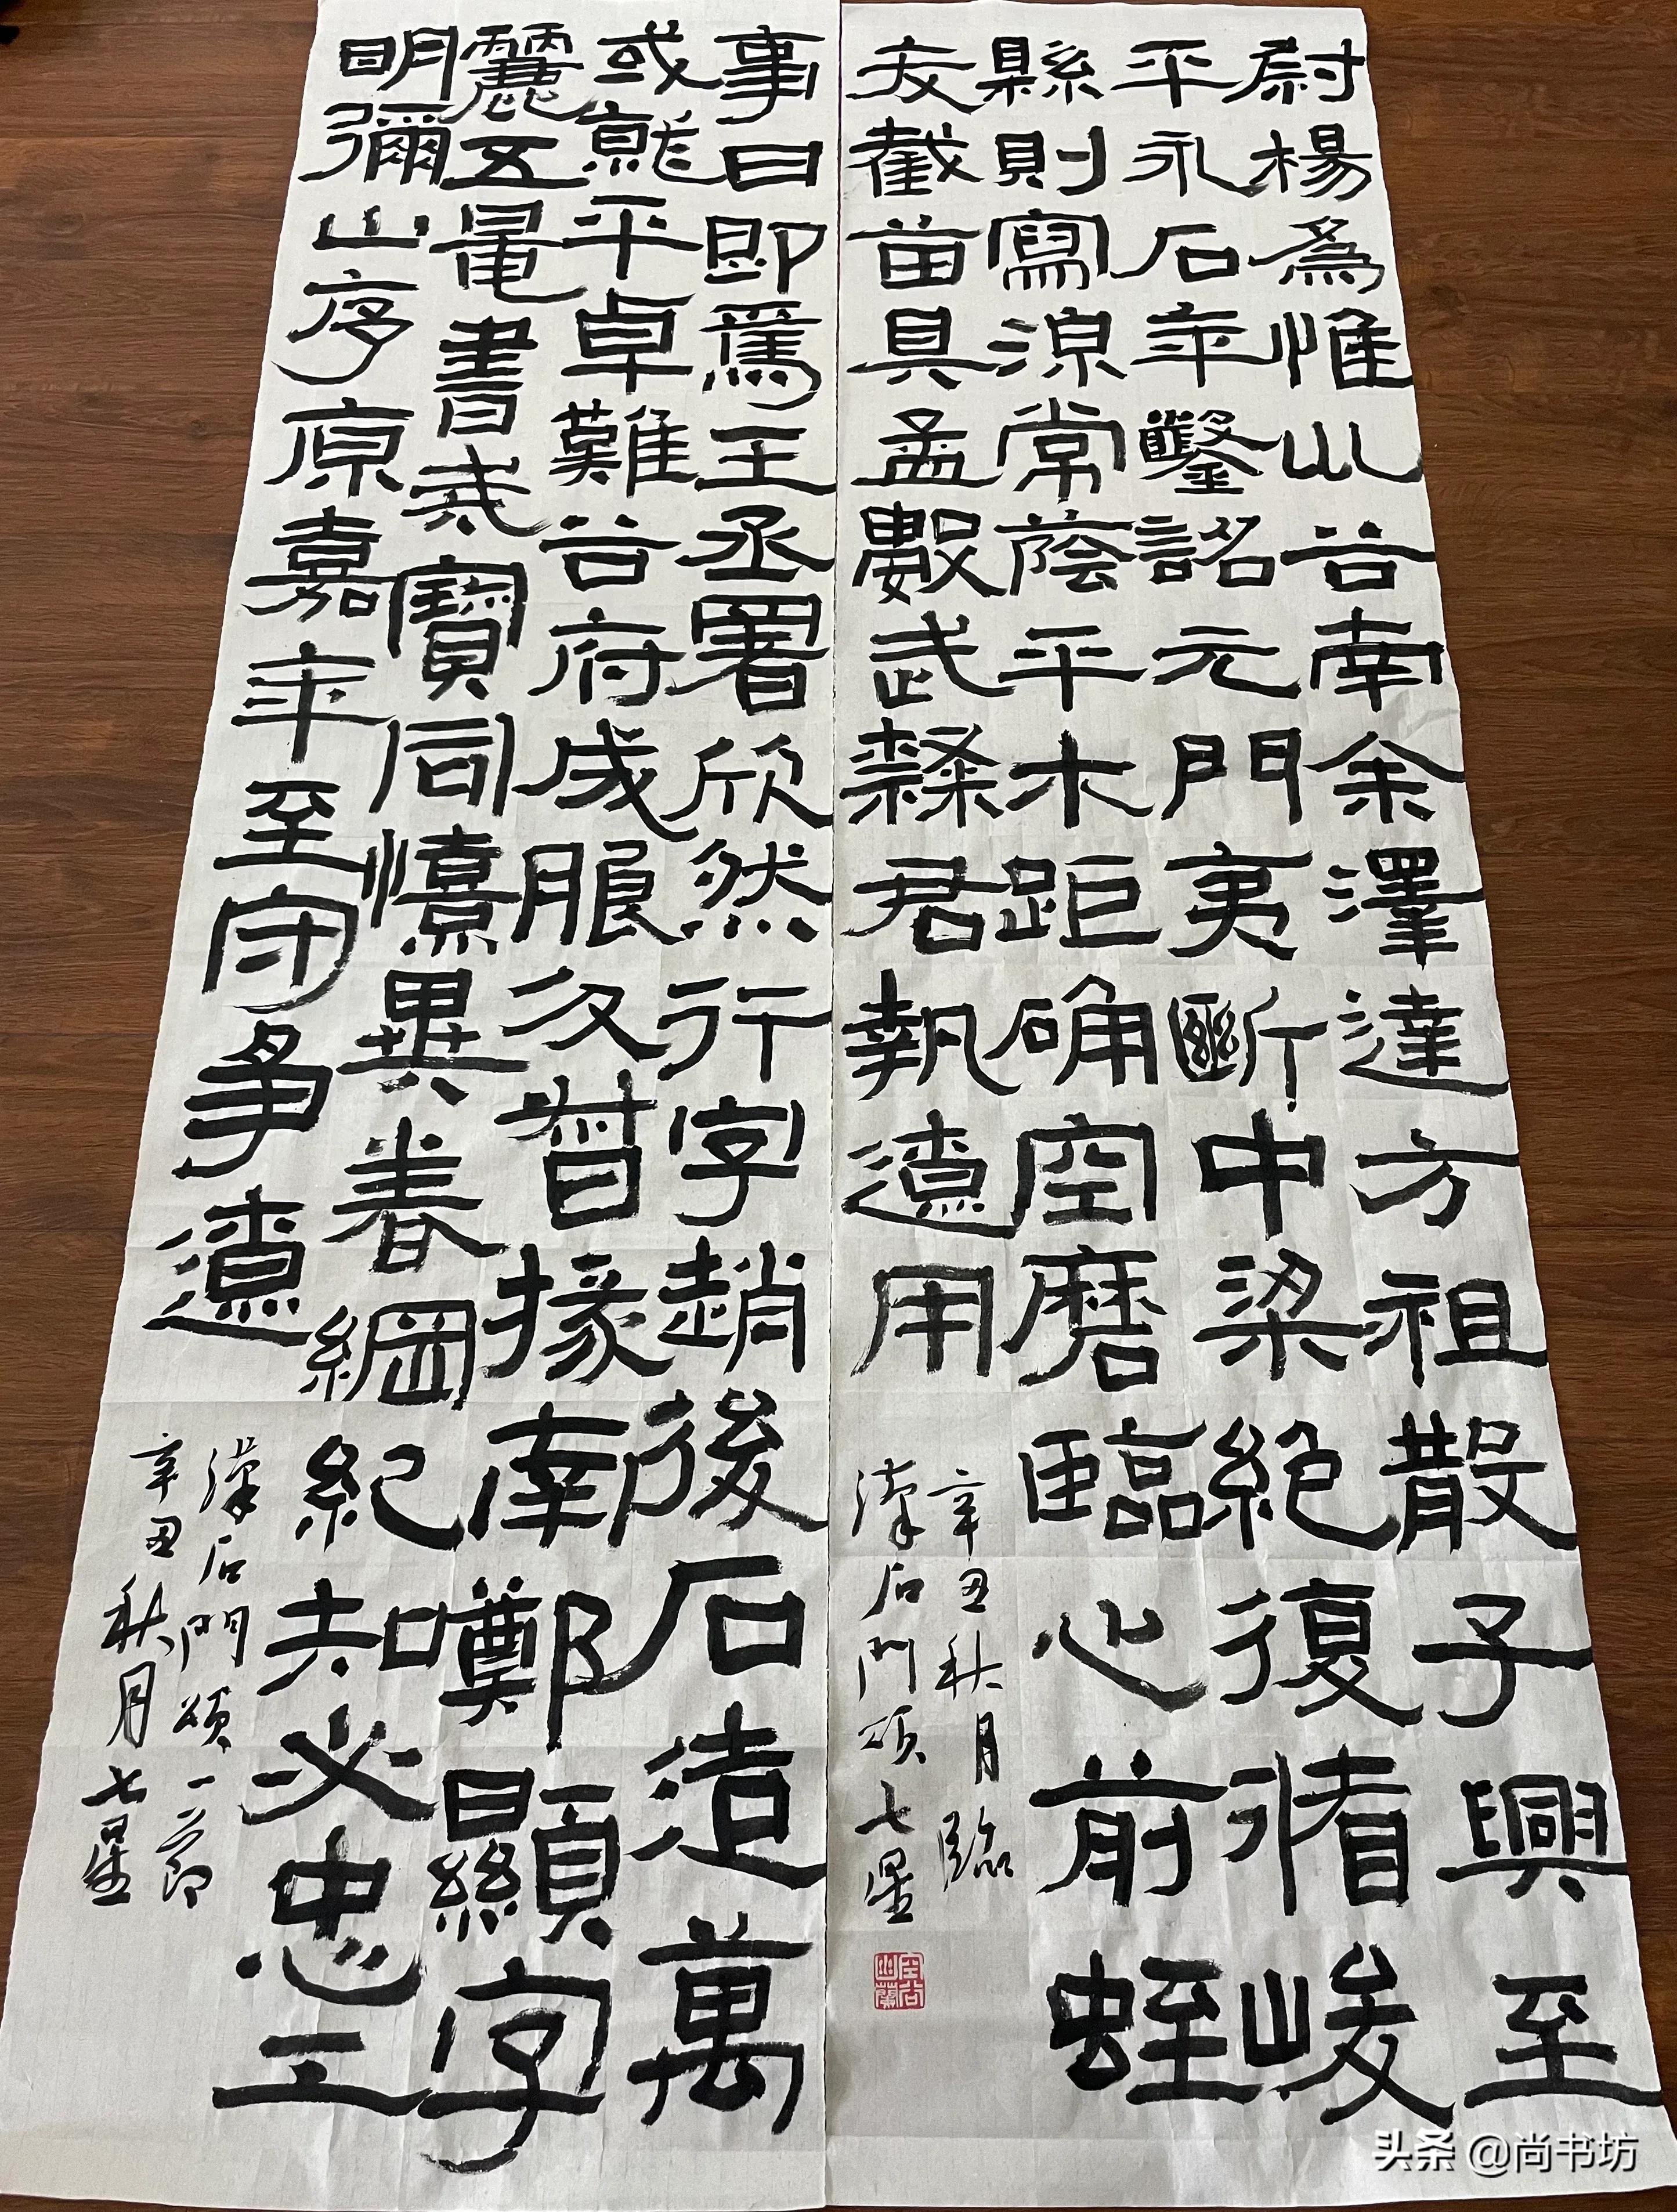 尉楊為惟山谷南余澤達方祖散子興至
平永石年鑿詔元門夷斷中梁絕復循峻
縣則寫涼常蔭平木距确空磨臨心前蛭
犮截苗具孟數武隸君執遼用
辛丑秋月臨
漢石門頌七星
空谷幽蘭
事曰即焉王丞署欣然行字趙後石造萬
或就平卓難谷府成服晉掾南鄭顯字
麗五量書寶同憙異春綱紀知必忠工
明彌山序原嘉年至守爭遼
漢石門頌一節
辛丑秋月七星
头条 @尚书坊